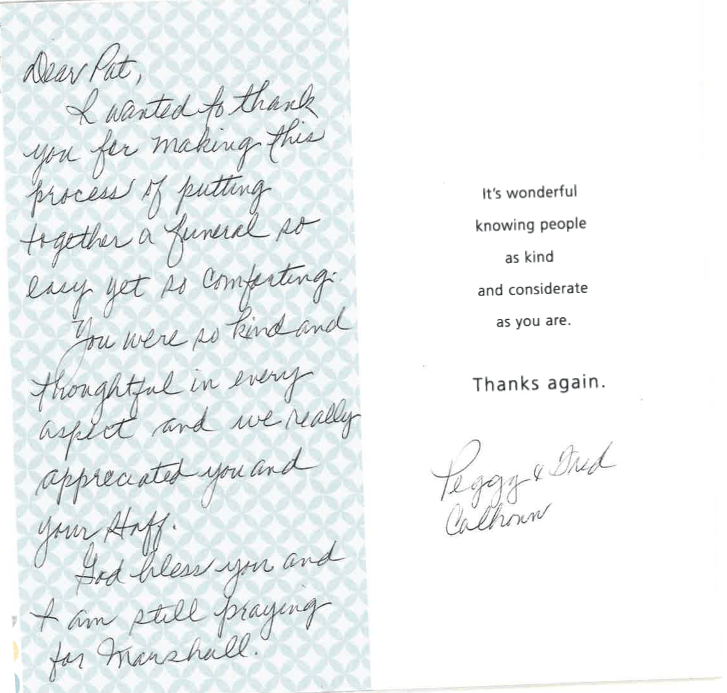 Dear Pat,
I wanted to thank
you for making this
process of putting
together a funeral so
easy yet so comforting.
You were so kind and
thoughtful in every
aspect and we really
appreciated you and
your staff.
God bless you and
I am still praying
for Marshall.
It's wonderful
knowing people
as kind
and considerate
as you are.
Thanks again.
Peggy &
Calhoun